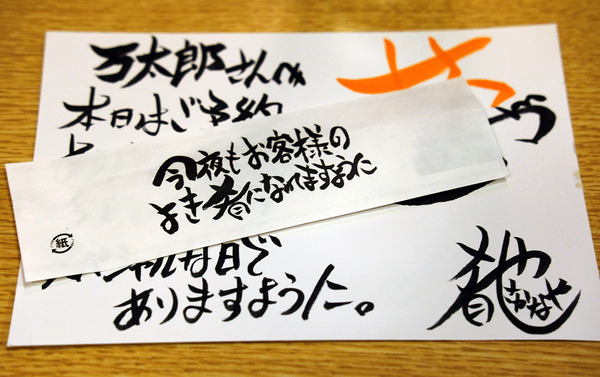 万太郎さんへ
本日はご予約
今夜もお客様の
よき肴になれますように
紙
な日で
ありますように。
肴や
さかなや